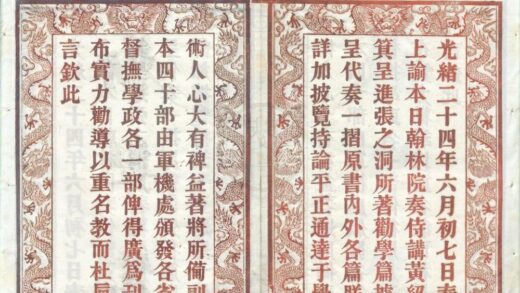 光緒二十四年六月初七日奉
上諭本日翰林院奏侍講黃紹
箕呈進張之洞所著勸學篇據
呈代奏一摺原書內外各篇朕
詳加披覽持論平正通達于學
術人心大有裨益著將所備副
本四十部由軍機處頒發各省
督撫學政各一部俾得廣爲刊
布實力勸導以重名教而杜卮
言欽此